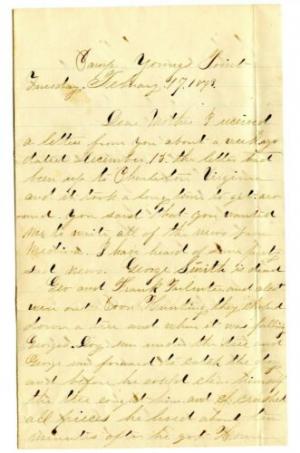 Camp Youngs Point
Tuesday, February 17, 1863.
Dear Mother I received
a letter from you about a week ago
dated December 15 the letter had
been up to Charleston Virginia
and it took a long time to get aro
und. You said that you wanted
me to write all of the news from
Medina. I have heard of some pretty
sad news. George Smith is dead
Geo and Frank and
were out Coon Hunting they choped
down a tree and when it was falling
Georges Dog run under the tree and
George run forward to catch the dog
and before he could clear himself
the tree caught him and crushed
all pieces he lived about ten
minutes after he got Home